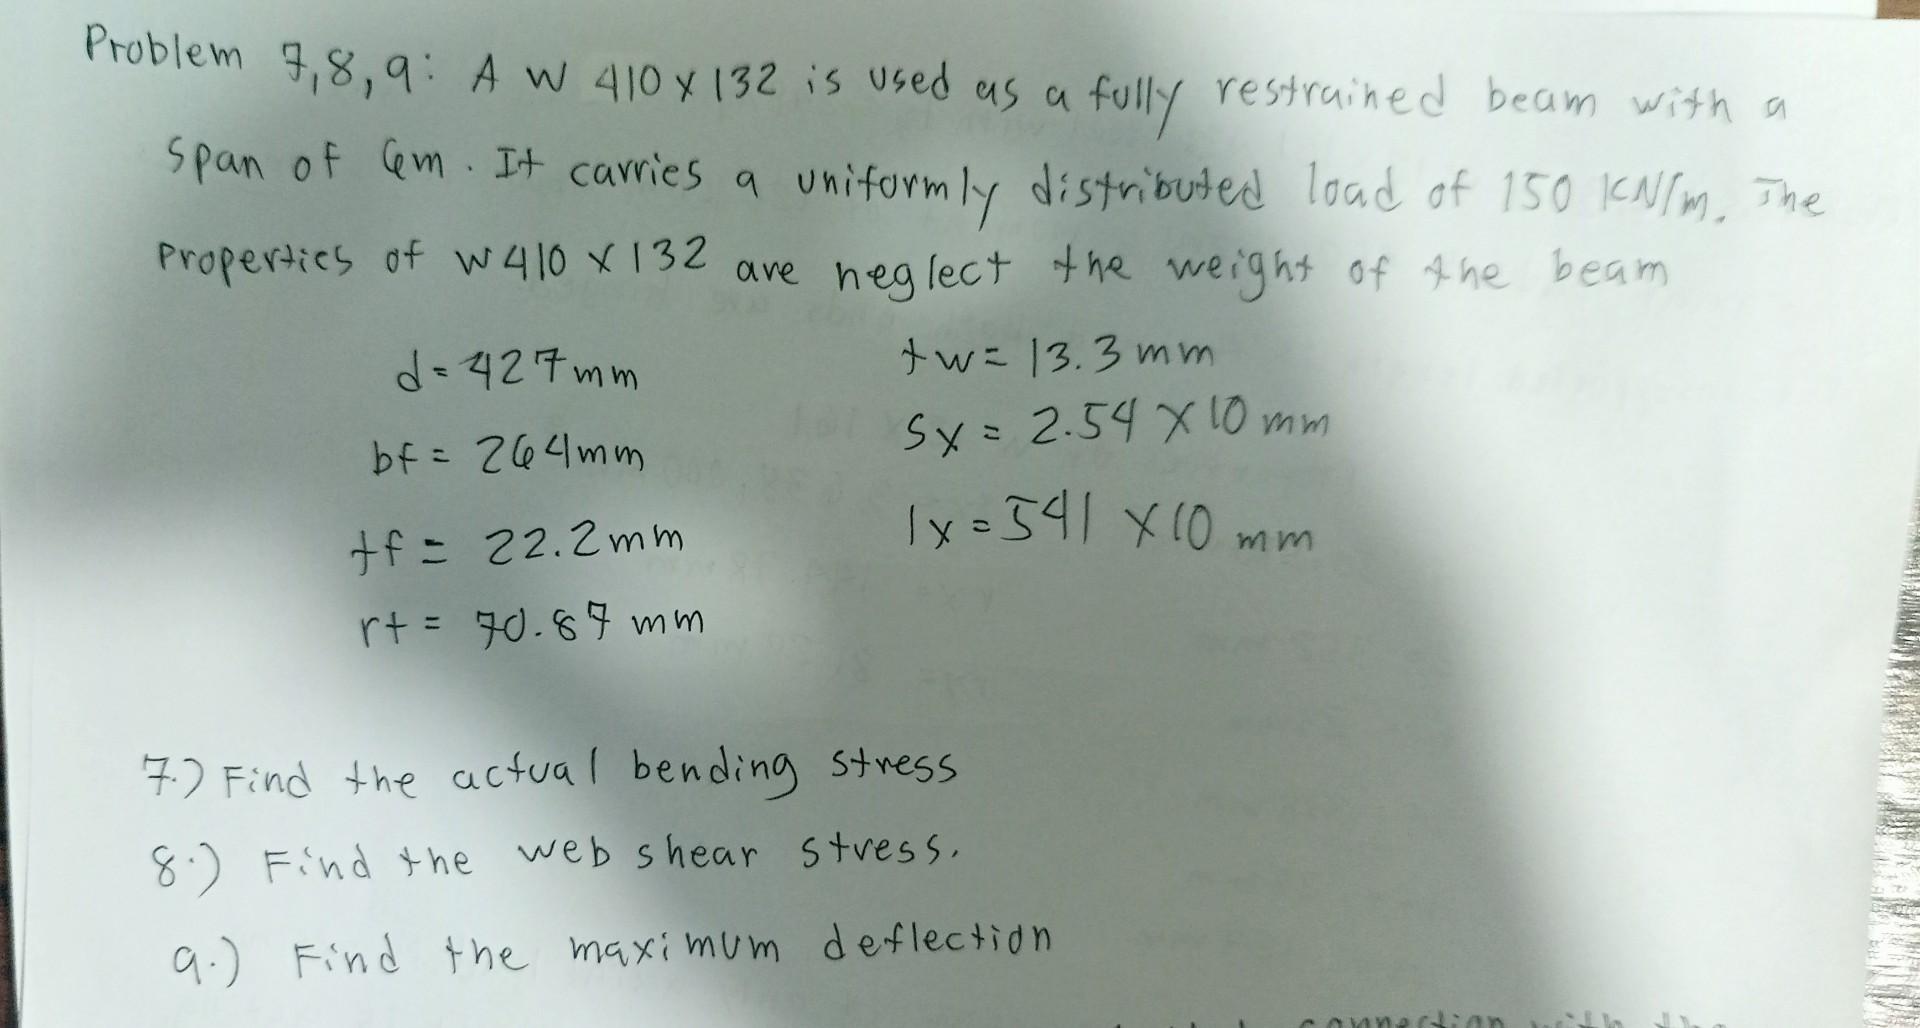 Problem 7,8,9: A W 410 x 132 is used as a fully restrained beam with a
span of 6m. It carries a uniformly distributed load of 150 KN/m. The
Properties of W410 x 132 are neglect the weight of the beam
d=427mm
bf= 264mm
tf= 22.2mm
rt= 70.87 mm
tw= 13.3 mm
Sx = 2.54 x 10 mm
Ix = 541 x 10 mm
7.) Find the actual bending stress
8.) Find the web shear stress.
9.) Find the maximum deflection
connection with the